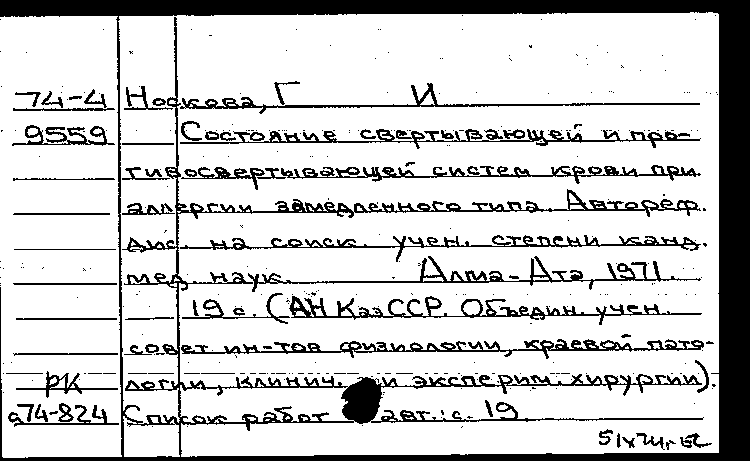 74-4 Носкова, Г И
9559 Состояние свертывающей и про-
тивосвертывающей систем крови при
аллергии замедленного типа. Автореф.
дис. на соиск. учен. степени канд.
мед. наук. Алма-Ата, 1971.
19 с. (АН КазССР. Объедин. учен.
совет ин-тов физиологии, краевой пато-
РК логии, клинич. и эксперим. хирургии).
а74-824 Список работ авт.: с. 19